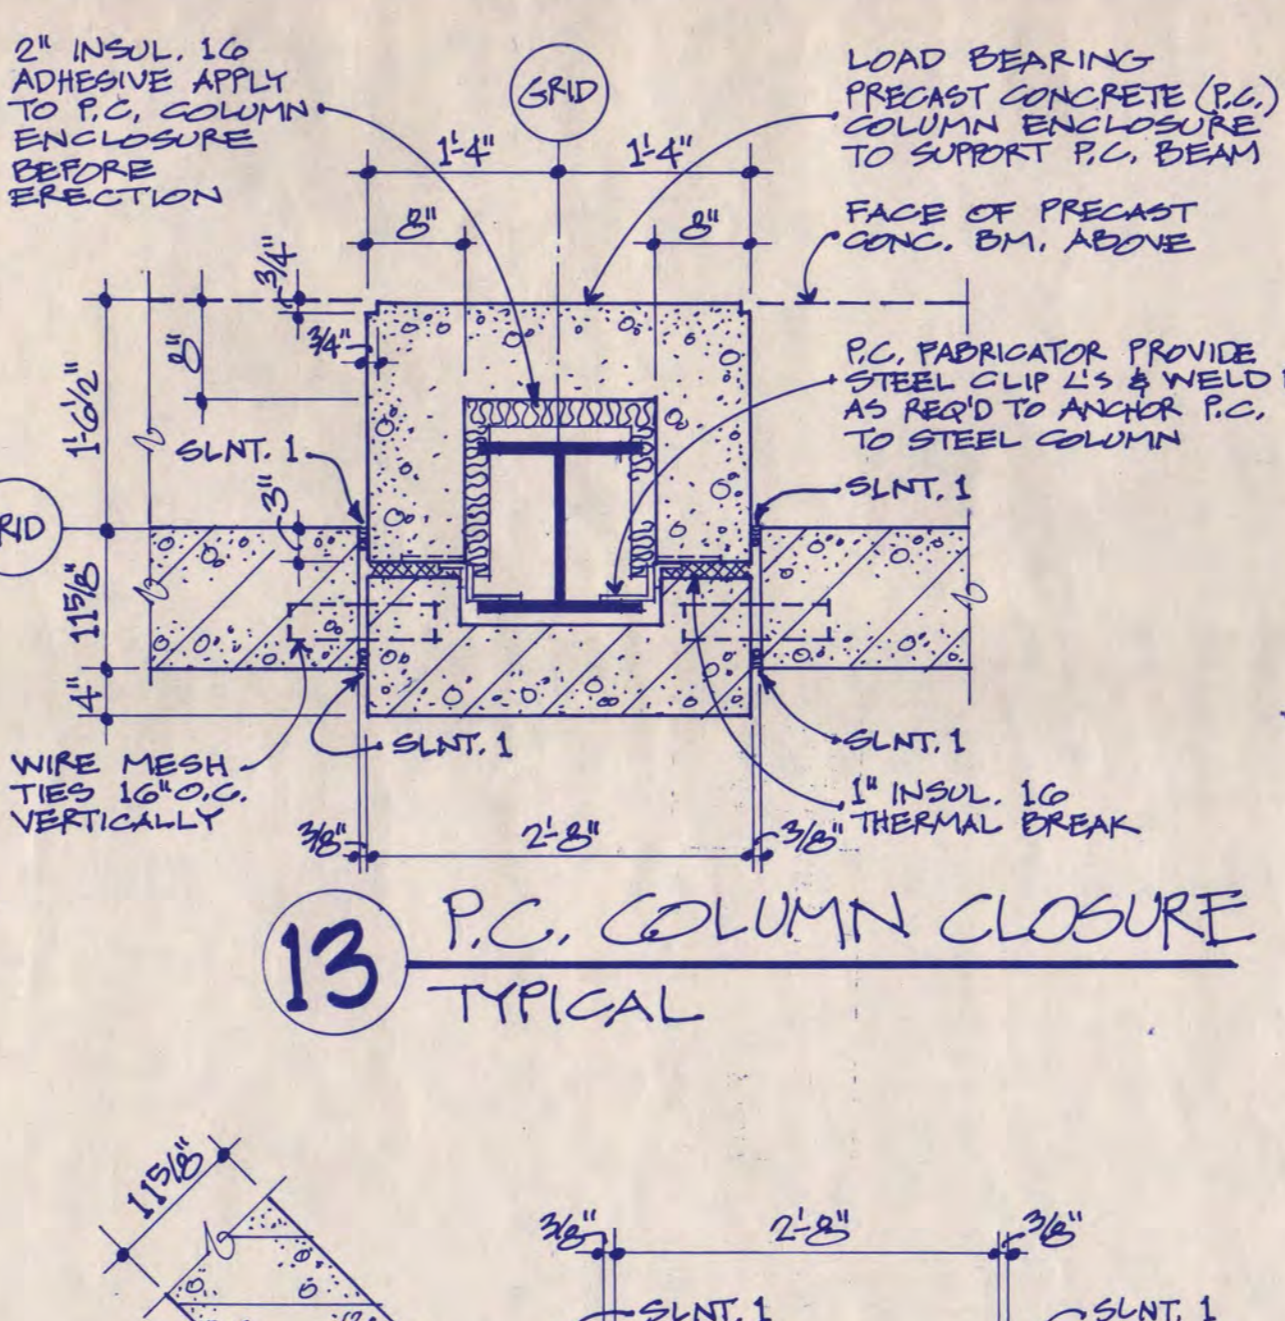 2" INSUL. 16
ADHESIVE APPLY
TO P.C. COLUMN
ENCLOSURE
BEFORE
ERECTION
GRID
LOAD BEARING
PRECAST CONCRETE (P.C.)
COLUMN ENCLOSURE
TO SUPPORT P.C. BEAM
1'-4"
1'-4"
8"
8"
FACE OF PRECAST
CONC. BM. ABOVE
3/4"
8"
3/4"
1'-6 1/2"
P.C. FABRICATOR PROVIDE
STEEL CLIP L'S & WELD
AS REQ'D TO ANCHOR P.C.
TO STEEL COLUMN
SLNT. 1
3"
SLNT. 1
RID
11 5/8"
4"
SLNT. 1
SLNT. 1
WIRE MESH
TIES 16" O.C.
VERTICALLY
1" INSUL. 16
THERMAL BREAK
3/8"
2'-8"
3/8"
13
P.C. COLUMN CLOSURE
TYPICAL
11 5/8"
3/8"
2'-8"
3/8"
SLNT. 1
SLNT. 1